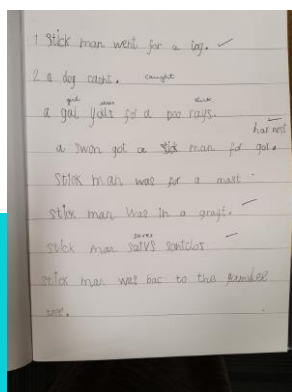 1 stick man went for a jog.
2 a dog cacht. caught
girl swan stick
a gal yols for a poo rays.
har nest
a swon got a man for got.
stick man was for a mast
stick man was in a grayt.
saves
stick man saivs santclos
stick man was bac to the
tree.